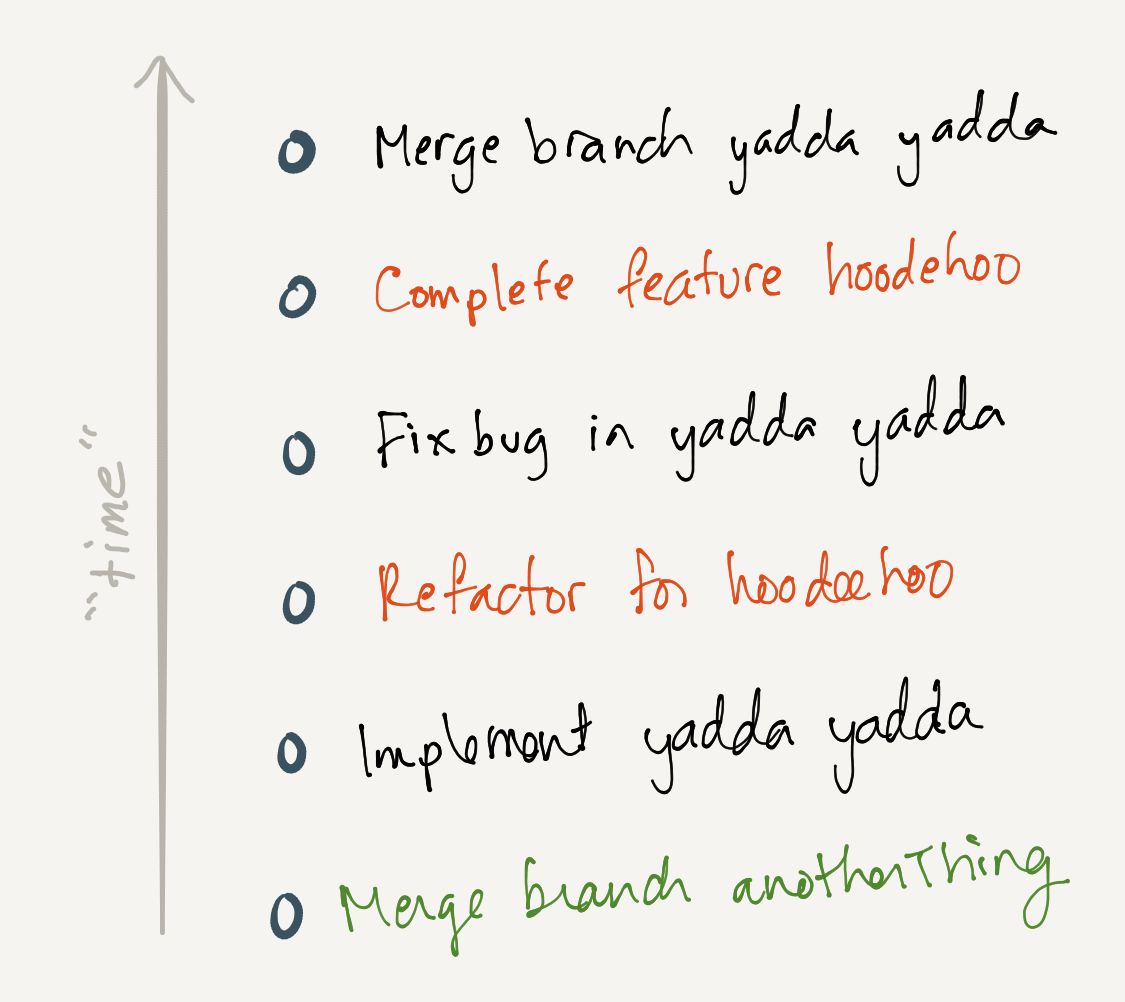 Merge branch yadda yadda
Complete feature hoodehoo
Fix bug in yadda yadda
"time"
Refactor for hoodeehoo
Implement yadda yadda
Merge branch anotherThing